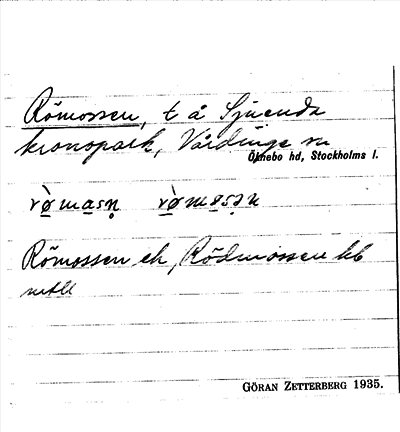 Römossen, t å Sjuenda
kronopark, Vårdinge sn
Öknebo hd, Stockholms l.
rö̀masn̥ rö̀mosən
Römossen ek, Rödmossen hb
GÖRAN ZETTERBERG 1935.